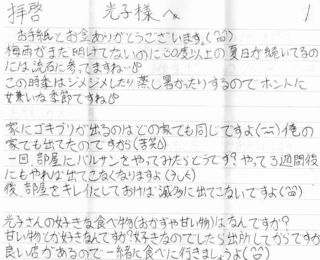 拝啓　光子様へ　1
お手紙とお金ありがとうございます。(^o^)
梅雨がまだ明けてないのに30度以上の夏日が続いてるの
には流石に参ってますね…
この時季はジメジメしたり蒸し暑かったりするのでホントに
嫌いな季節ですね
家にゴキブリが出るのはどの家でも同じですよ(ーー)俺の
家でも出てたのですから(苦笑)
一回、部屋にバルサンをやってみたらどうです?やって3週間後
にもやれば出てこなくなりますよ
後、部屋をキレイにしておけば滅多に出てこないですよ(^o^)
光子さんの好きな食べ物(おかずや甘い物)はなんですか?
甘い物とか好きなんですか?好きなのでしたら出所してからですが
良い店があるので一緒に食べに行きましょうよ(^o^)